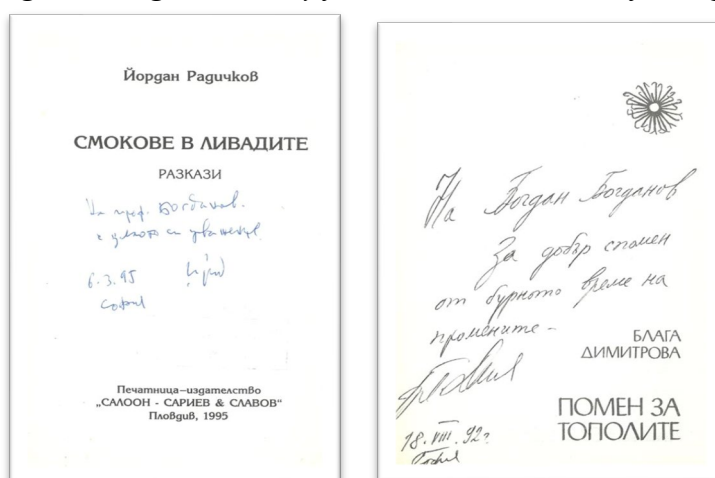 Йордан Радичков
СМОКОВЕ В ЛИВАДИТЕ
РАЗКАЗИ
На проф. Богданов.
с цялото си уважение
6.3.95
София
Печатница-издателство
„САЛООН - САРИЕВ & СЛАВОВ“
Пловдив, 1995
На Богдан Богданов
За добър спомен
от бурното време на
промените –
БЛАГА
ДИМИТРОВА
ПОМЕН ЗА
ТОПОЛИТЕ
18.VIII.92г
София